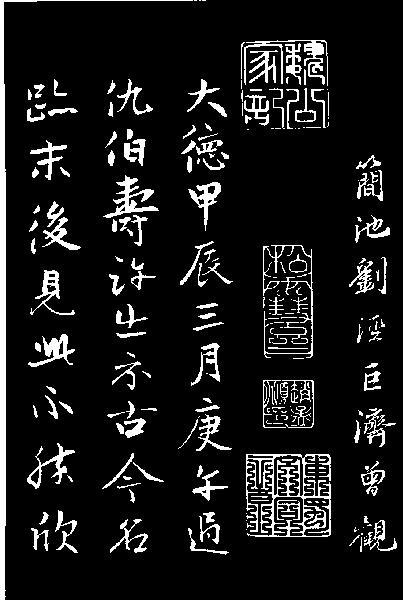 簡池劉涇巨濟曾觀
趙孟頫印
大德甲辰三月庚午過
仇伯壽許出示古今名
跡末後見此不勝欣